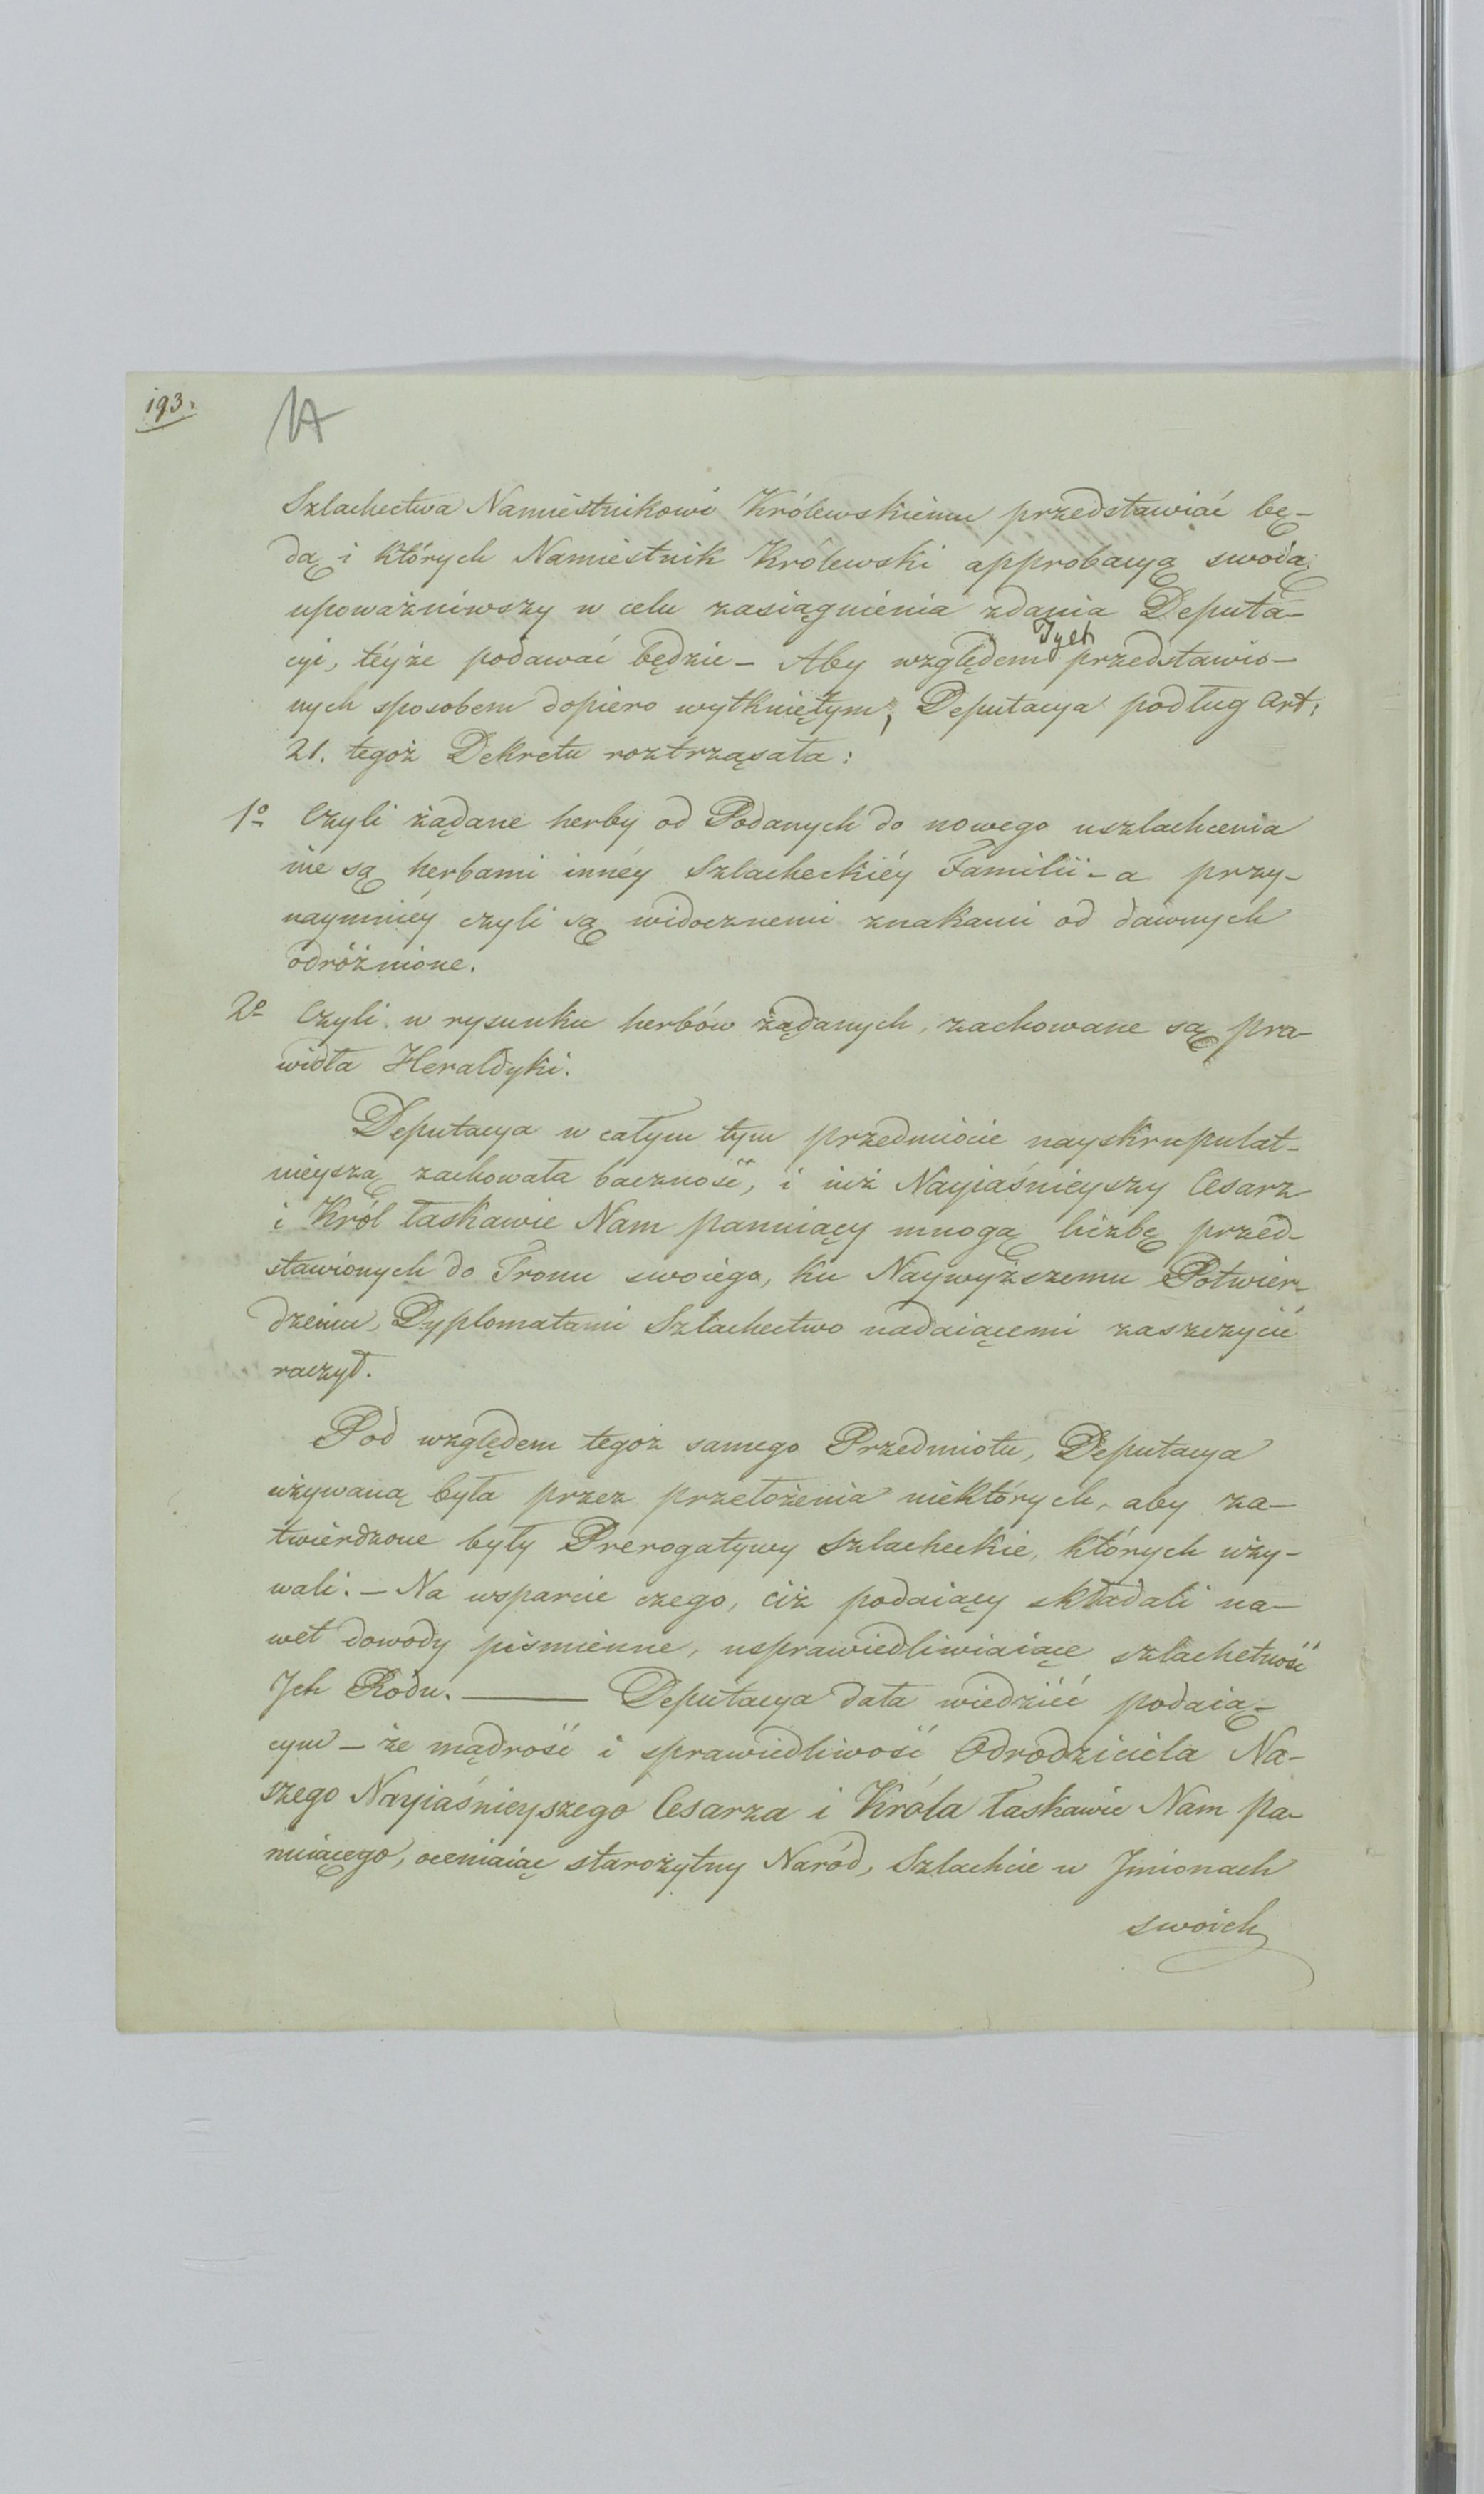 193.
Szlachectwa Namiestnikowi Królewskiemu przedstawiać bę-
dą i których Namiestnik Królewski approbacyą swoią
upoważniwszy w celu zasiągnienia zdania Deputa-
cyi, téyże podawać będzie – Aby względem Tych przedstawio-
nych sposobem dopiero wytkniętym, Deputacya podług Art.
21. tegoż Dekretu roztrząsała:
1º Czyli żądane herby od Podanych do nowego uszlachcenia
nie są herbami innéy Szlacheckiéy Familii – a przy-
naymniéy czyli są widocznemi znakami od dawnych
odróżnione.
2º Czyli w rysunku herbów żądanych, zachowane są pra-
widła Heraldyki.
Deputacya w całym tym przedmiocie nayskrupulat-
nieyszą zachowała baczność, i iuż Nayiaśnieyszy Cesarz
i Król łaskawie Nam panuiący mnogą liczbę przed-
stawionych do Tronu swoiego, ku Naywyższemu Potwier-
dzeniu, Dyplomatami Szlachectwo nadaiącemi zaszczycić
raczył.
Pod względem tegoż samego Przedmiotu, Deputacya
wzywaną była przez przełożenia niektórych, aby za-
twierdzone były Prerogatywy szlacheckie, których uży-
wali. – Na wsparcie czego, ciż podaiący składali na-
wet dowody piśmienne, usprawiedliwiaiące szlachetność
Ich Rodu. — Deputacya dała wiedzieć podaią-
cym – że mądrość i sprawiedliwość Odrodziciela Na-
szego Nayiaśnieyszego Cesarza i Króla łaskawie Nam pa-
nuiącego, oceniaiąc starożytny Naród, Szlachcie w Imionach
swoich